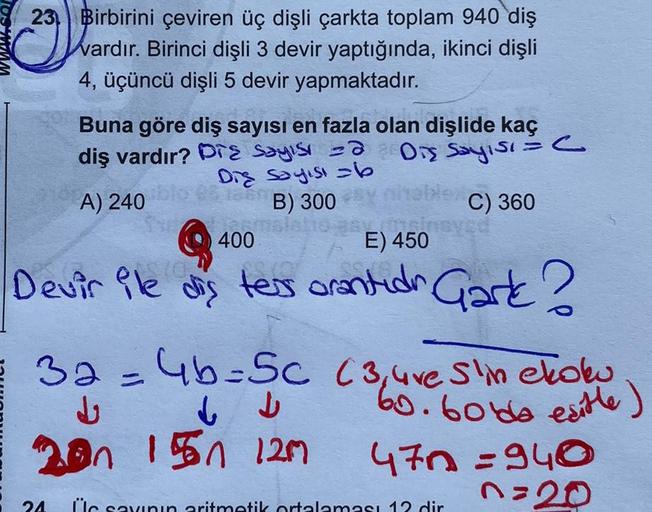 23. Birbirini çeviren üç dişli çarkta toplam 940 diş
vardır. Birinci dişli 3 devir yaptığında, ikinci dişli
4, üçüncü dişli 5 devir yapmaktadır.
Buna göre diş sayısı en fazla olan dişlide kaç
diş vardır? Diş sayısı = a Diş sayısı = c
Diş sayısı = b
A) 240 B) 300 C) 360
D) 400 E) 450
Devir ile diş ters orantıdır Çark?
3a = 4b = 5c (3,4 ve 5'in ekoku
60. 60'da eşitle)
20n 15n 12n 47n = 940
n = 20
24 Üç sayının aritmetik ortalaması 12 dir